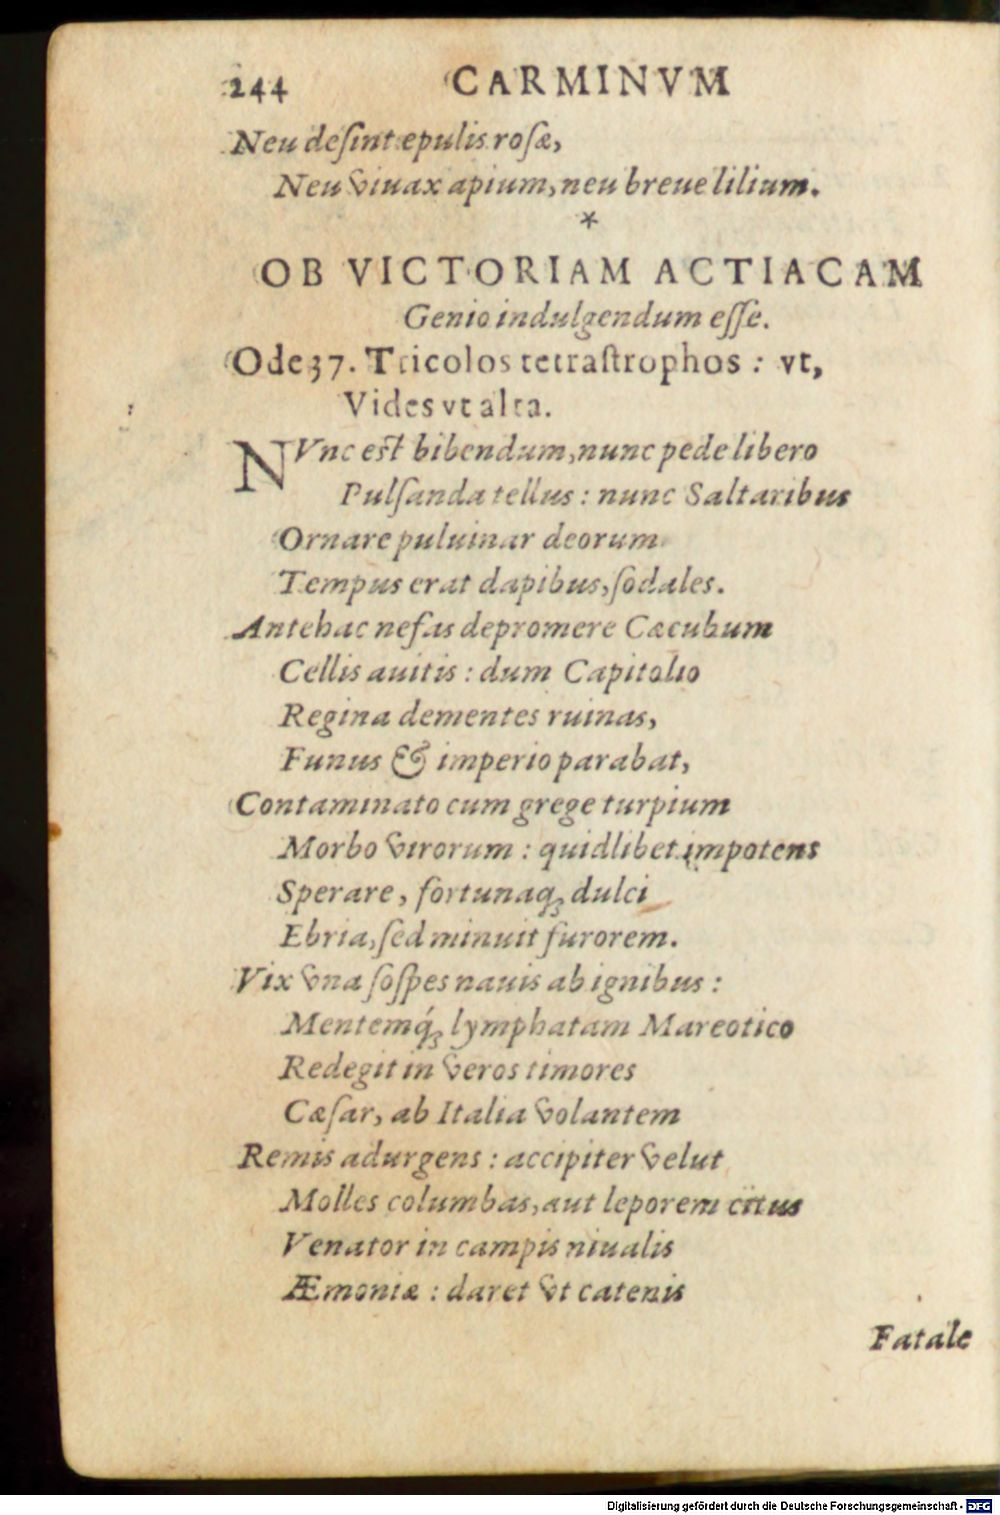 244 CARMINVM
Neu desint epulis rosæ,
Neu viuax apium, neu breue lilium.
*
OB VICTORIAM ACTIACAM
Genio indulgendum esse.
Ode 37. Tricolos tetrastrophos: vt,
Vides vt alta.
NVnc est bibendum, nunc pede libero
Pulsanda tellus: nunc Saltaribus
Ornare puluinar deorum
Tempus erat dapibus, sodales.
Antehac nefas depromere Cæcubum
Cellis auitis: dum Capitolio
Regina dementes ruinas,
Funus & imperio parabat,
Contaminato cum grege turpium
Morbo virorum: quidlibet impotens
Sperare, fortunaq; dulci
Ebria, sed minuit furorem.
Vix vna sospes nauis ab ignibus:
Mentemq́; lymphatam Mareotico
Redegit in veros timores
Cæsar, ab Italia volantem
Remis adurgens: accipiter velut
Molles columbas, aut leporem citus
Venator in campis niualis
Æmoniæ: daret vt catenis
Fatale
Digitalisierung gefördert durch die Deutsche Forschungsgemeinschaft - DFG